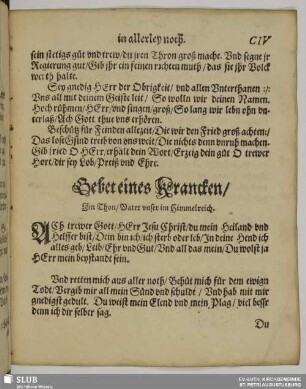 in allerley noth. CIV
sein stetigs güt vnd trew/du jren Thron groß mache. Vnd segne jr
Regierung gut/Gib jhr ein feinen rechten muth/das sie jhr Volck
werth halte.
Sey gnedig HErr der Obrigkeit/vnd allen Vnterthanen :/:
Vns all mit deinem Geiste leit/So wolln wir deinen Namen.
Hoch rühmen/HErr/vnd singen/groß/So lang wir lebn ohn vn-
terlaß/Ach Gott thue vns erhören.
Beschütz für Feinden allezeit/Die wir den Fried groß achten/
Das lose Gsind treib von vns weit/Die nichts denn vnruh machen.
Gib fried O HErr/erhalt dein Wort/Erzeig dein güt O trewer
Hort/dir sey Lob/Preiß vnd Ehr.
Gebet eines Krancken/
Im Thon/Vater vnser im Himmelreich.
ACh trewer Gott/HErr Jesu Christ/du mein Heiland vnd
Helffer bist/Dein bin ich/ich sterb oder leb/In deine Hend ich
alles geb/Leib/Ehr vnd Gut/Vnd all das mein/Du wolst ja
HErr mein beystand sein.
Vnd rett mich aus aller noth/Behüt mich für dem ewign
Todt/Vergib mir all mein Sünd vnd schuldt/Vnd hab mit mir
gnedigst gedult. Du weist mein Elend vnd mein Plag/viel besser
denn ich dir selber sag.
Du
SLUB
Wir führen Wissen.
EV.-LUTH. KIRCHGEMEINDE
ST. PETRI AUGUSTUSBURG